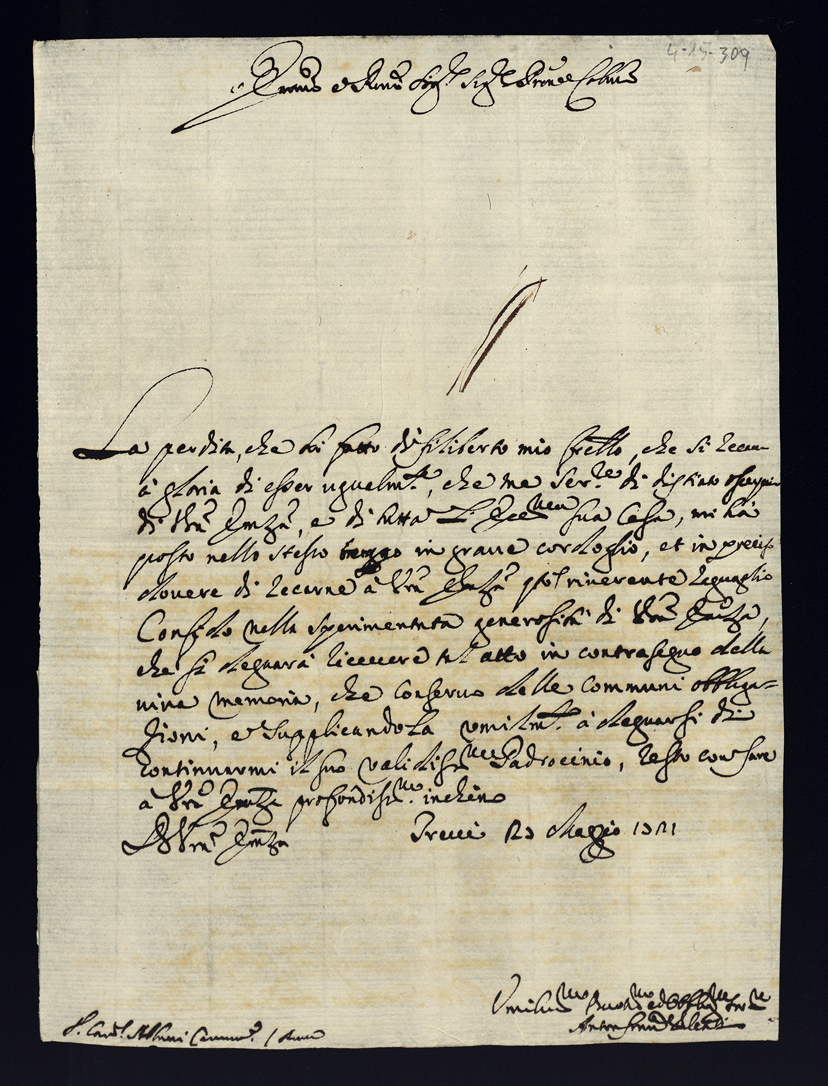 4-15-309
Emo e Rmo Sigr. Sigr. Prone Colmo
La perdita, che hò fatto di Filiberto mio frello, che si recaua
à gloria di esser ugualmte, che me Serre. di
di Vra Emza, e di tutta l'Eccma sua Casa, mi hà
posto nello stesso tempo in graue cordoglio, et in precisо
douere di recarne à Vra Emza riuerente raguaglio
Confido nella sperimentata generosità di Vra Emza,
che si degnarà riceuere tal atto in contrasegno della
memoria, che conseruo delle communi obbliga=
zioni, e supplicandola umilmte. à degnarsi di
continuarmi il suo validissmo Padrocinio, resto con fare
à Vra Emza profondissmo. inchino
Di Vra Emza Treui 23 Maggio 1721
Umilissmo Deuotmo ed Obblmo Serre
Valenti
S. Cardl. Albani Camerlo. / Roma